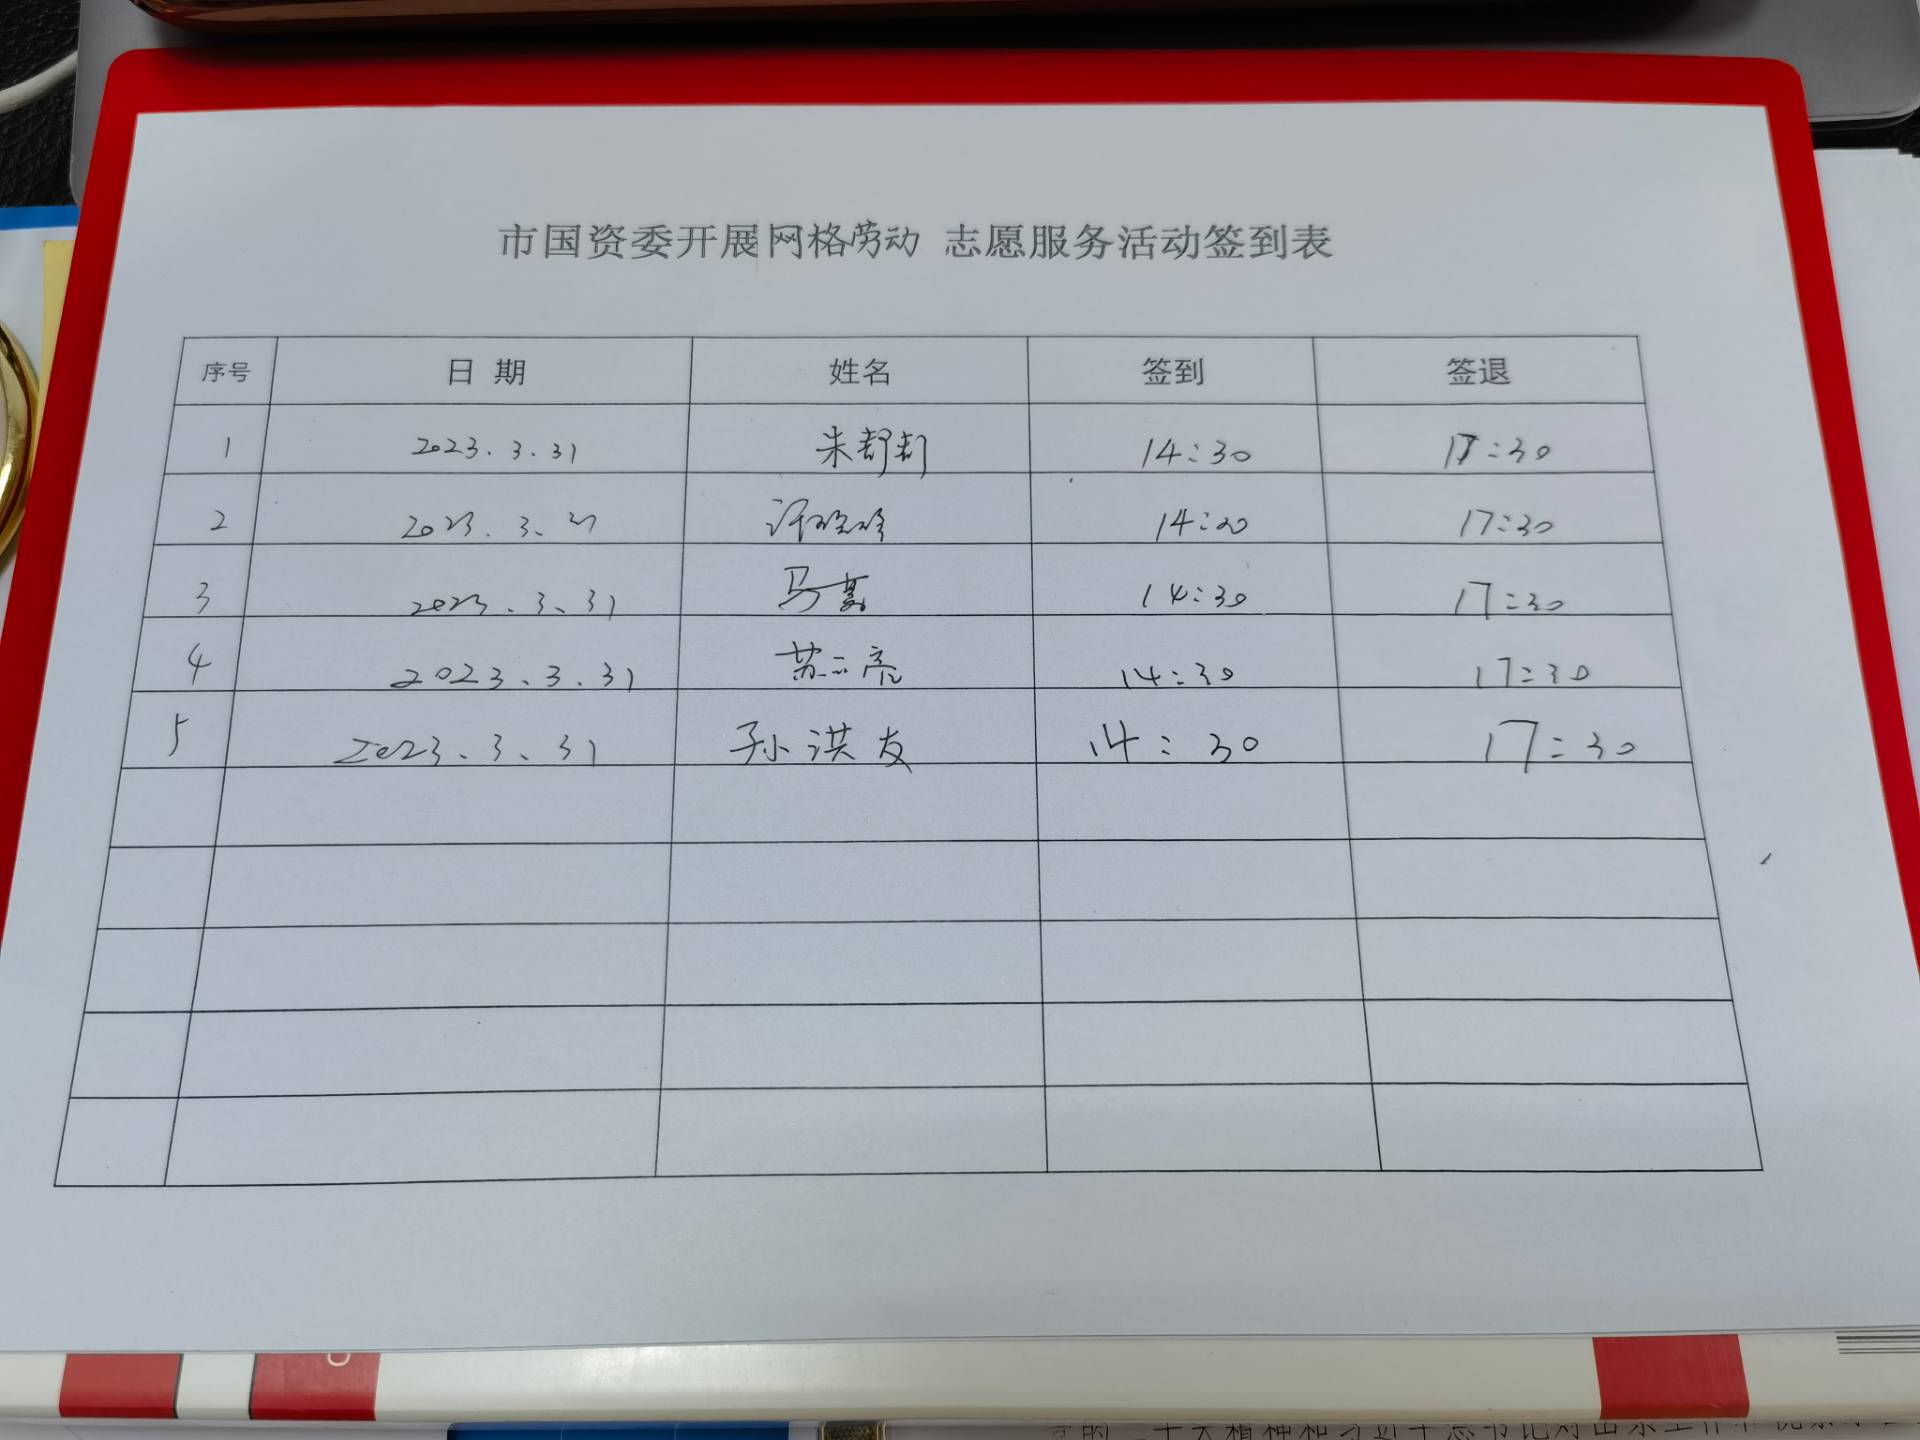 市国资委开展网格劳动 志愿服务活动签到表
序号 日期 姓名 签到 签退
1 2023.3.31 朱 14:30 17:30
2 2023.3.31 许 14:30 17:30
3 2023.3.31 马 14:30 17:30
4 2023.3.31 苏 亮 14:30 17:30
5 2023.3.31 孙洪友 14:30 17:30